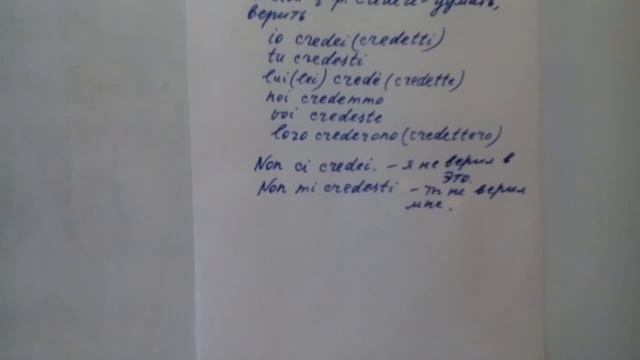 credere - думать,
верить
io credei (credetti)
tu credesti
lui (lei) credè (credette)
noi credemmo
voi credeste
loro crederono (credettero)
Non ci credei. - я не верил в
это.
Non mi credesti - ты не верил
мне.